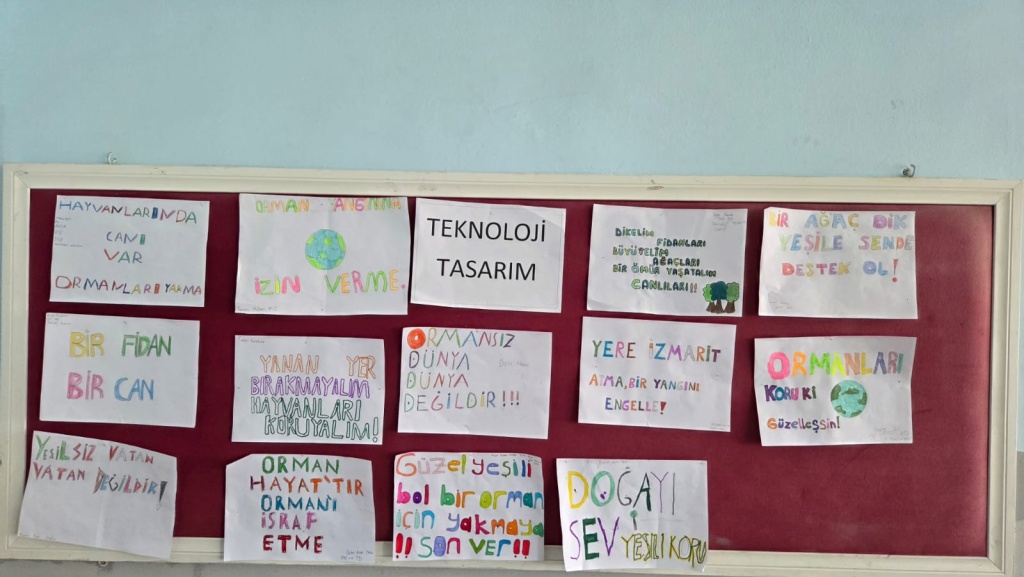 HAYVANLARINDA
CANI
VAR
ORMANLARI YAKMA
ORMAN YANGININA
İZİN VERME.
TEKNOLOJİ
TASARIM
DİKELİM
FİDANLARI
BÜYÜTELİM
AĞAÇLARI
BİR ÖMÜR YAŞATALIM
CANLILARI!!
BİR AĞAÇ DİK
YEŞİLE SENDE
DESTEK OL!
BİR FİDAN
BİR CAN
YANAN YER
BIRAKMAYALIM
HAYVANLARI
KORUYALIM!
ORMANSIZ
DÜNYA
DÜNYA
DEĞİLDİR!!!
YERE İZMARİT
ATMA, BİR YANGINI
ENGELLE!
ORMANLARI
KORU Kİ
Güzelleşsin!
YEŞİLSİZ VATAN
VATAN DEĞİLDİR!
ORMAN
HAYAT'TIR
ORMAN'I
İSRAF
ETME
Güzel yeşili
bol bir orman
için yakmaya
!! SON VER!!
DOĞAYI
SEV YEŞİLİ KORU